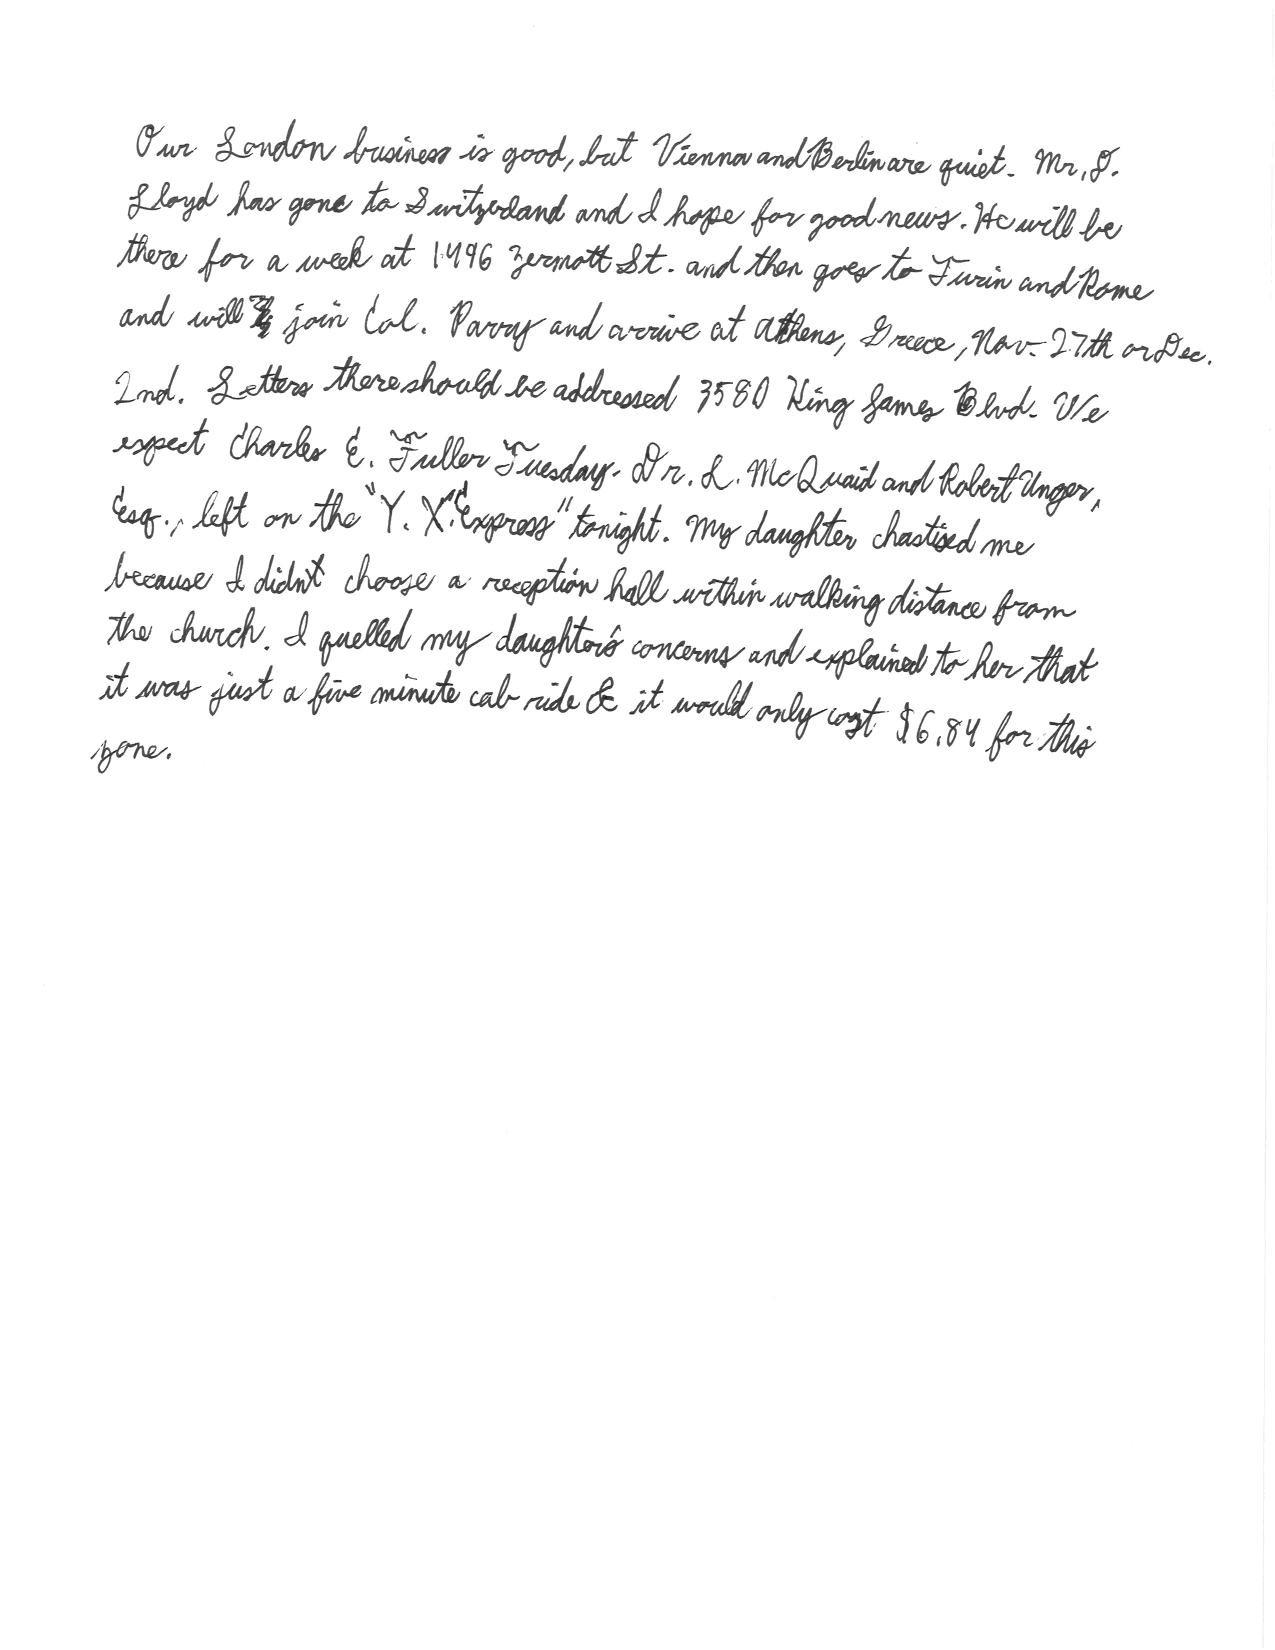 Our London business is good, but Vienna and Berlin are quiet. Mr. D.
Lloyd has gone to Switzerland and I hope for good news. He will be
there for a week at 1496 Zermott St. and then goes to Turin and Rome
and will join Col. Parry and arrive at Athens, Greece, Nov. 27th or Dec.
2nd. Letters there should be addressed 3580 King James Blvd. We
expect Charles E. Fuller Tuesday. Dr. L. McQuaid and Robert Unger,
Esq., left on the "Y. X. Express" tonight. My daughter chastised me
because I didn't choose a reception hall within walking distance from
the church. I quelled my daughter's concerns and explained to her that
it was just a five minute cab ride & it would only cost $6.84 for this
zone.